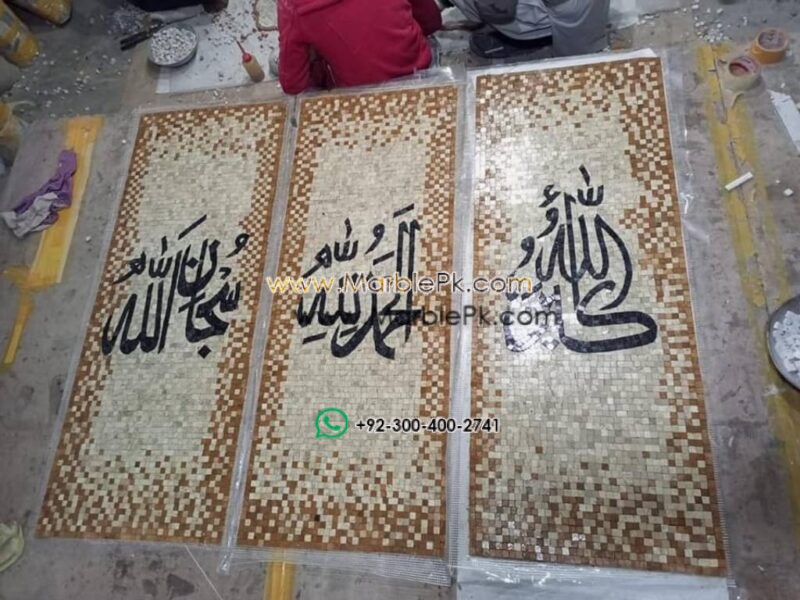 سُبْحَانَ اللّٰه
الحَمْدُ لِلّٰهِ
اللّٰهُ أَكْبَرُ
www.MarblePk.com
MarblePk.com
+92-300-400-2741